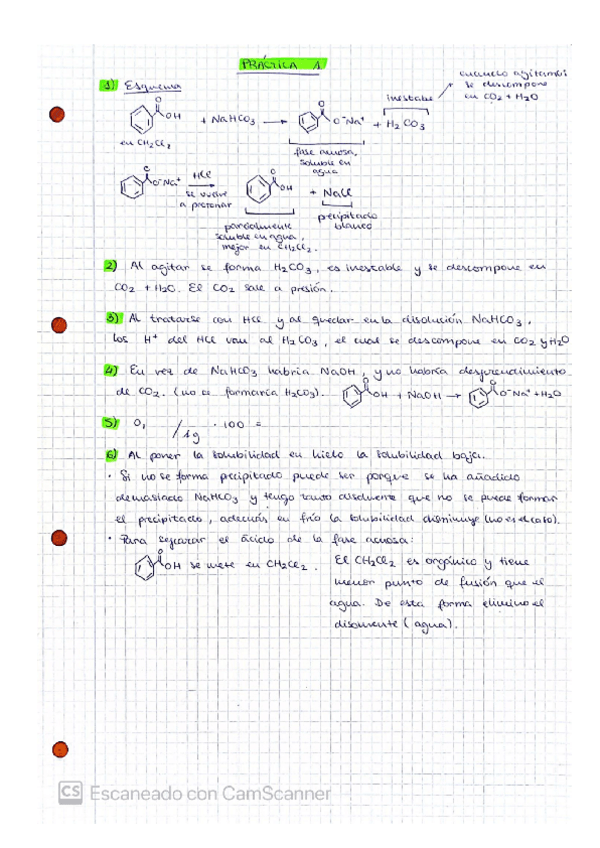 PRÁCTICA 1
1) Esquema
cuando agitamos
se descompone
en CO2 + H2O
inestable
O
OH + NaHCO3 → O⁻Na⁺ + H2CO3
en CH2Cl2
fase acuosa,
soluble en
agua
O⁻Na⁺ HCl → OH + NaCl
se vuelve
a protonar
parcialmente
soluble en agua,
mejor en CH2Cl2.
precipitado
blanco
2) Al agitar se forma H2CO3, es inestable y se descompone en
CO2 + H2O. El CO2 sale a presión.
3) Al tratarse con HCl y al quedar en la disolución NaHCO3,
los H⁺ del HCl van al H2CO3, el cual se descompone en CO2 y H2O
4) En vez de NaHCO3 habría NaOH, y no habría desprendimiento
de CO2. (no se formaría H2CO3). OH + NaOH → O⁻Na⁺ + H2O
5) 0, / 1g · 100 =
6) Al poner la solubilidad en hielo la solubilidad baja.
· Si no se forma precipitado puede ser porque se ha añadido
demasiado NaHCO3 y tengo tanto disolvente que no se puede formar
el precipitado, además en frío la solubilidad disminuye (no es el caso).
· Para separar el ácido de la fase acuosa:
OH se mete en CH2Cl2. El CH2Cl2 es orgánico y tiene
menor punto de fusión que el
agua. De esta forma elimino el
disolvente (agua).
CS Escaneado con CamScanner